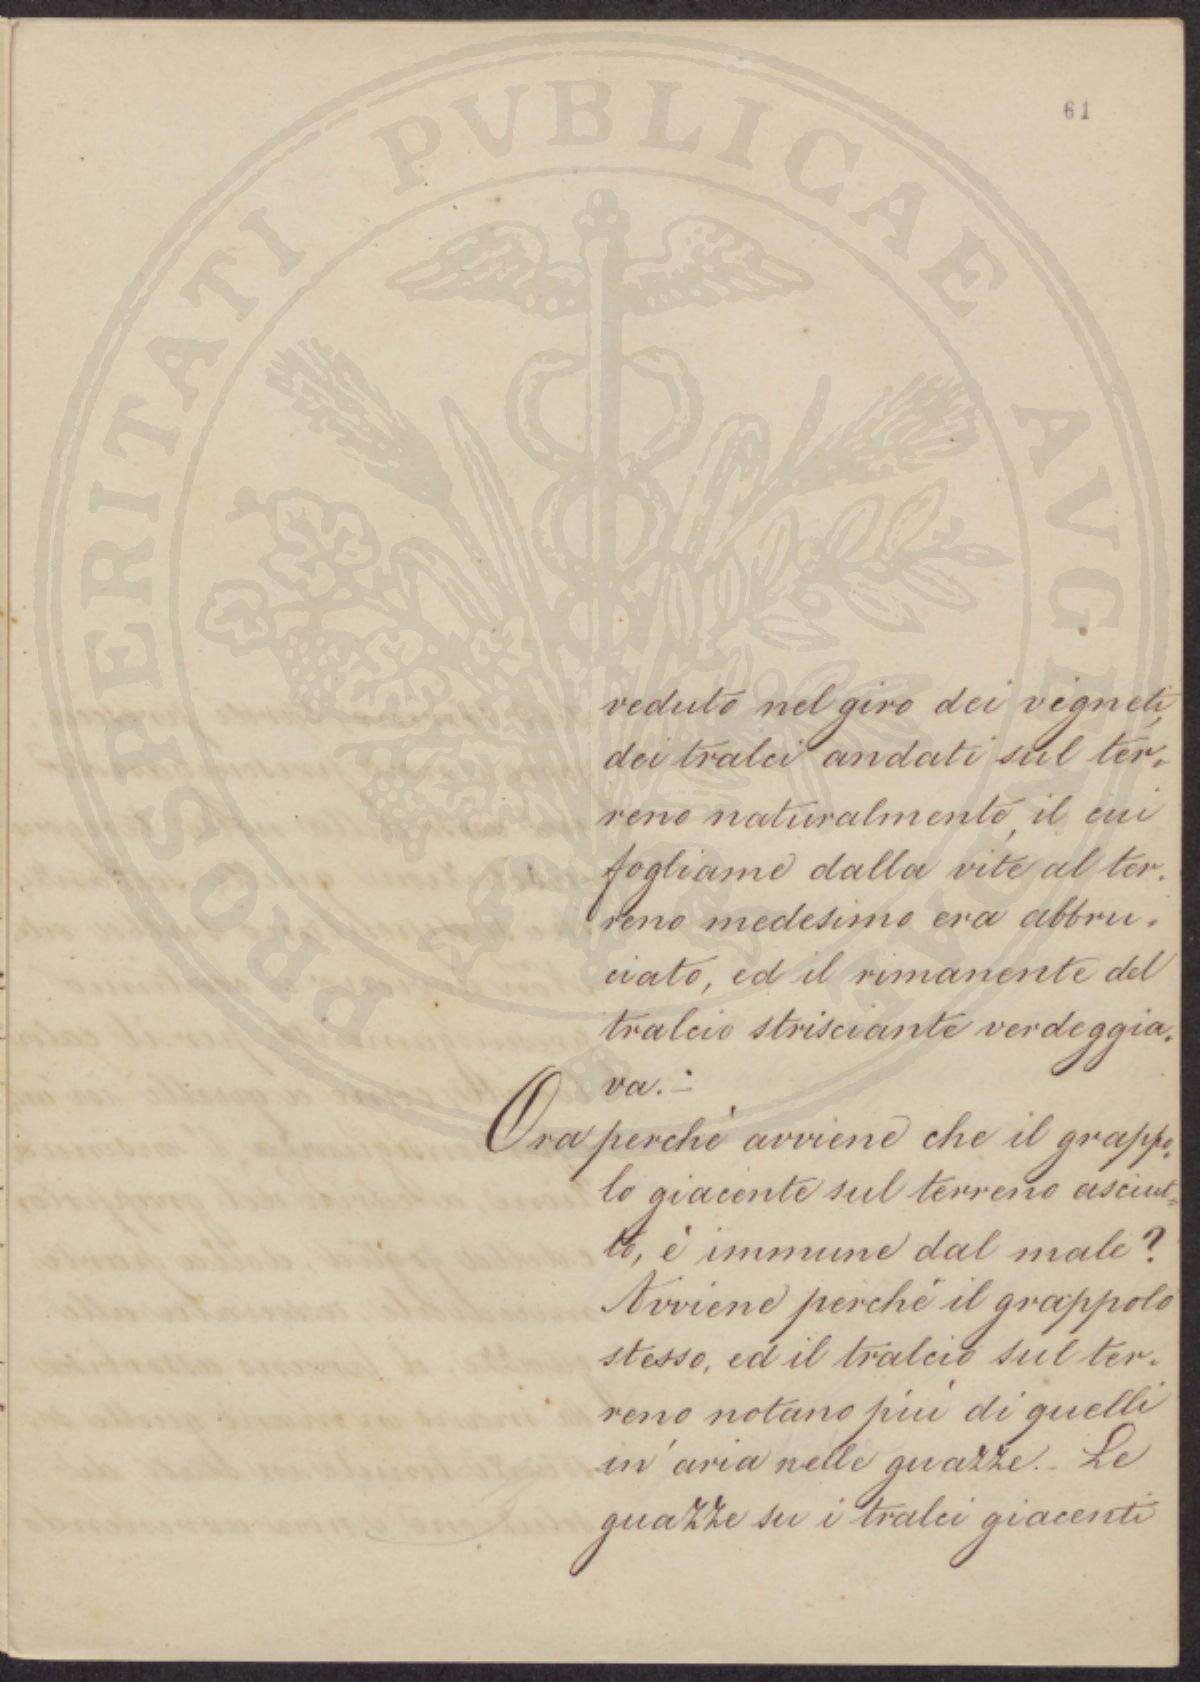 61
PROSPERITATI PUBLICAE AVGENDAE
veduto nel giro dei vigneti,
dei tralci andati sul ter-
reno naturalmente, il cui
fogliame dalla vite al ter-
reno medesimo era abbru-
ciato, ed il rimanente del
tralcio strisciante verdeggia-
va.-
Ora perché avviene che il grappo-
lo giacente sul terreno asciut-
to, é immune dal male?
Avviene perché il grappolo
stesso, ed il tralcio sul ter-
reno notano piú di quelli
in aria nelle guazze.- Le
guazze su i tralci giacenti